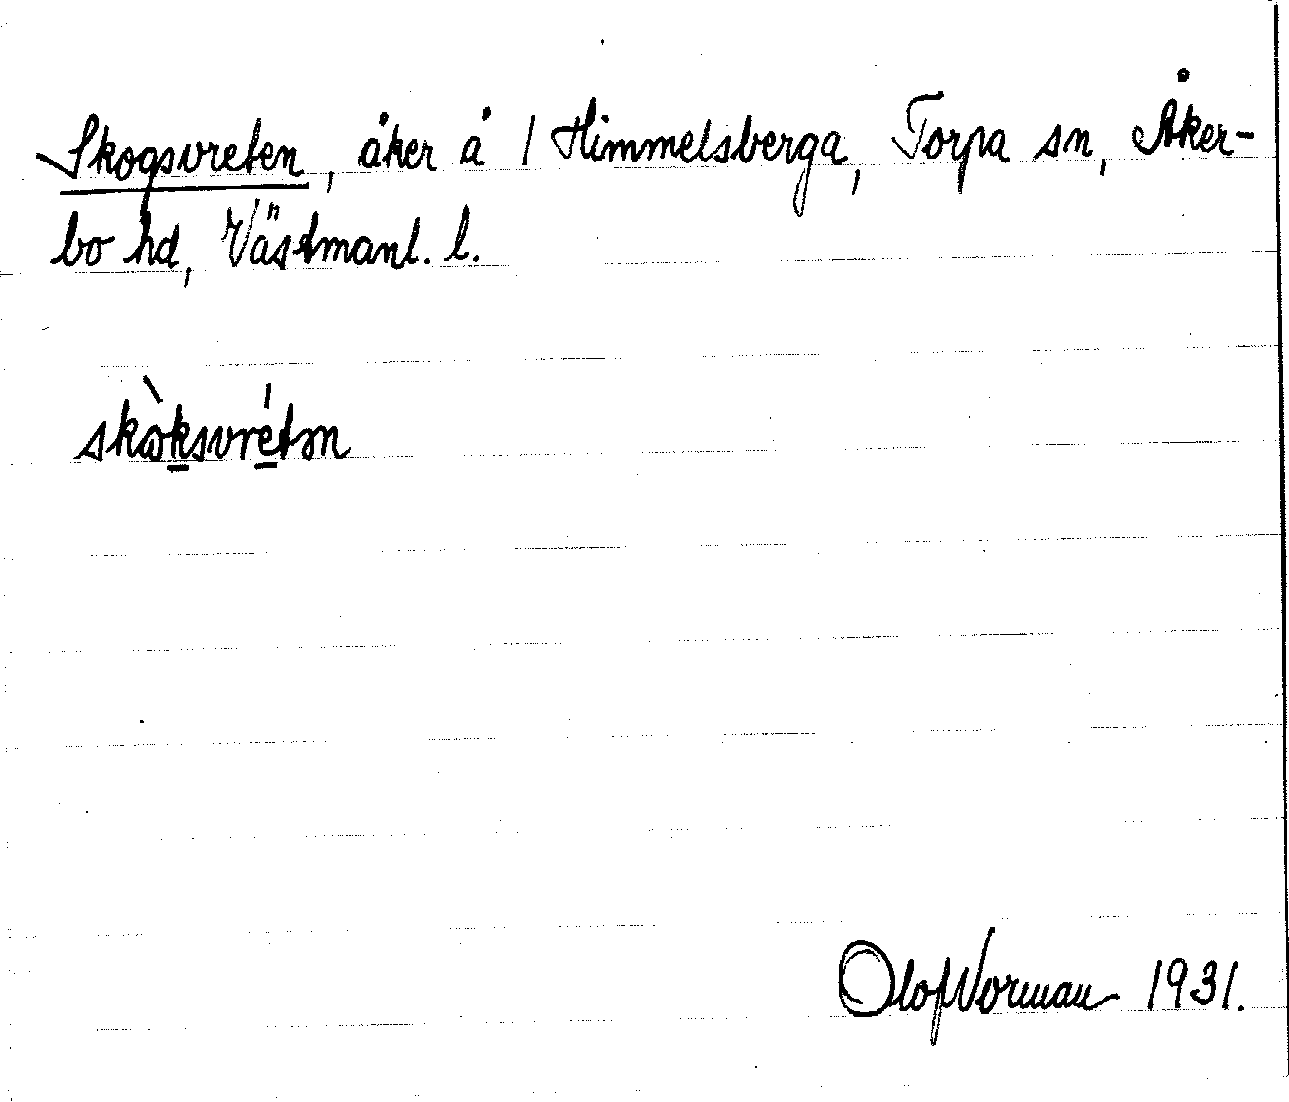 Skogsvreten, åker å 1 Himmelsberga, Torpa sn, Åker-
bo hd, Västmanl. l.
skò̀ksvrétən
Olof Norman 1931.